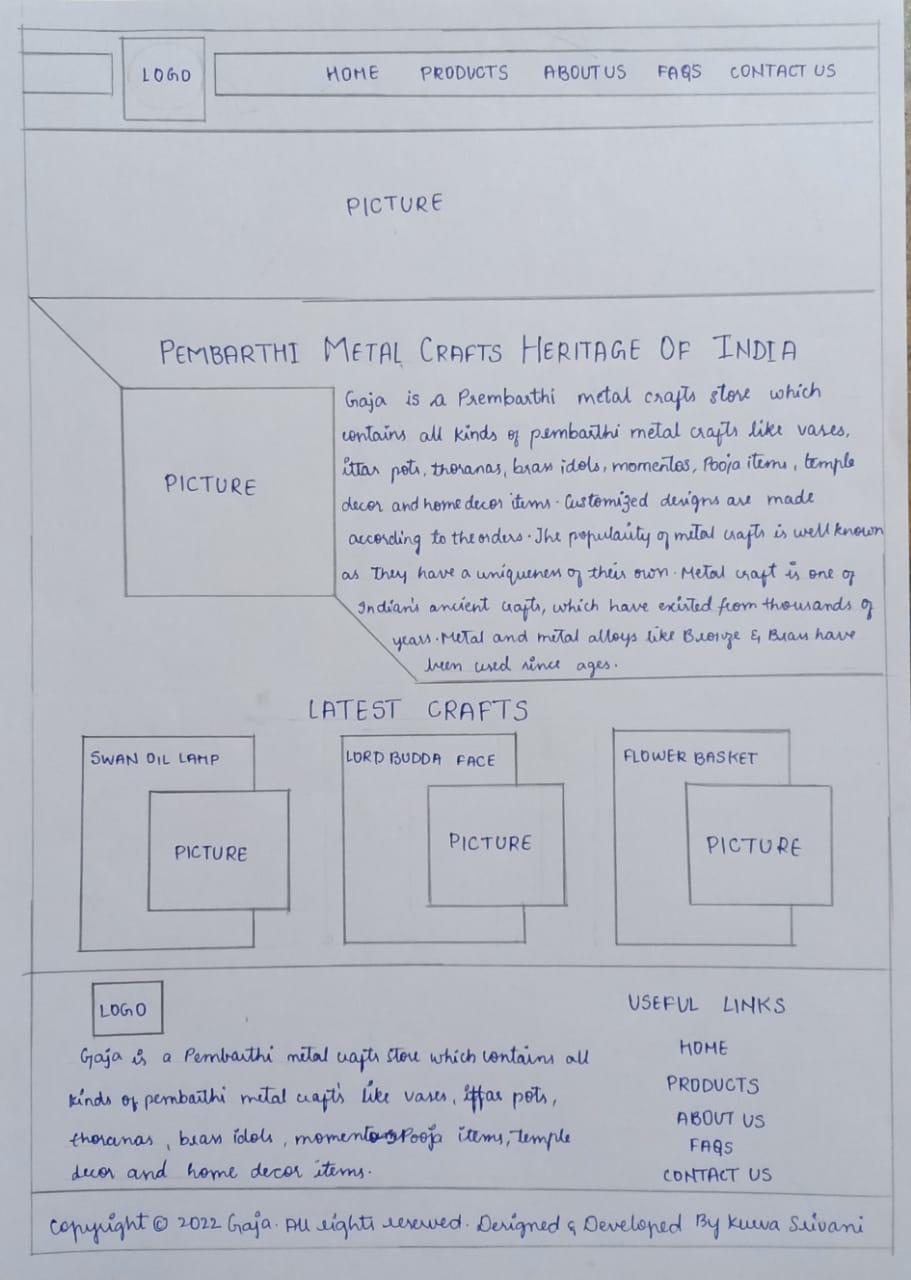 LOGO HOME PRODUCTS ABOUT US FAQS CONTACT US
PICTURE
PEMBARTHI METAL CRAFTS HERITAGE OF INDIA
PICTURE
Gaja is a Prembarthi metal crafts store which
contains all kinds of pembarthi metal crafts like vases,
ittar pots, thoranas, brass idols, momentos, Pooja items, temple
decor and home decor items. Customized designs are made
according to the orders. The popularity of metal crafts is well known
as They have a uniqueness of their own. Metal craft is one of
Indian's ancient crafts, which have existed from thousands of
years. Metal and metal alloys like Bronze & Brass have
been used since ages.
LATEST CRAFTS
SWAN OIL LAMP
PICTURE
LORD BUDDA FACE
PICTURE
FLOWER BASKET
PICTURE
LOGO
Gaja is a Pembarthi metal crafts store which contains all
kinds of pembarthi metal crafts like vases, ittar pots,
thoranas, brass idols, momentos Pooja items, temple
decor and home decor items.
USEFUL LINKS
HOME
PRODUCTS
ABOUT US
FAQS
CONTACT US
Copyright © 2022 Gaja. All rights reserved. Designed & Developed By Kurva Srivani